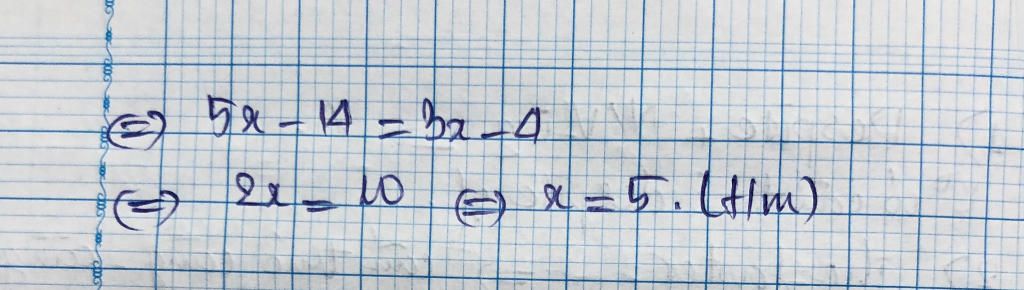 ⇔ 5x - 14 = 3x - 4
⇔ 2x = 10 ⇔ x = 5. (t/m)